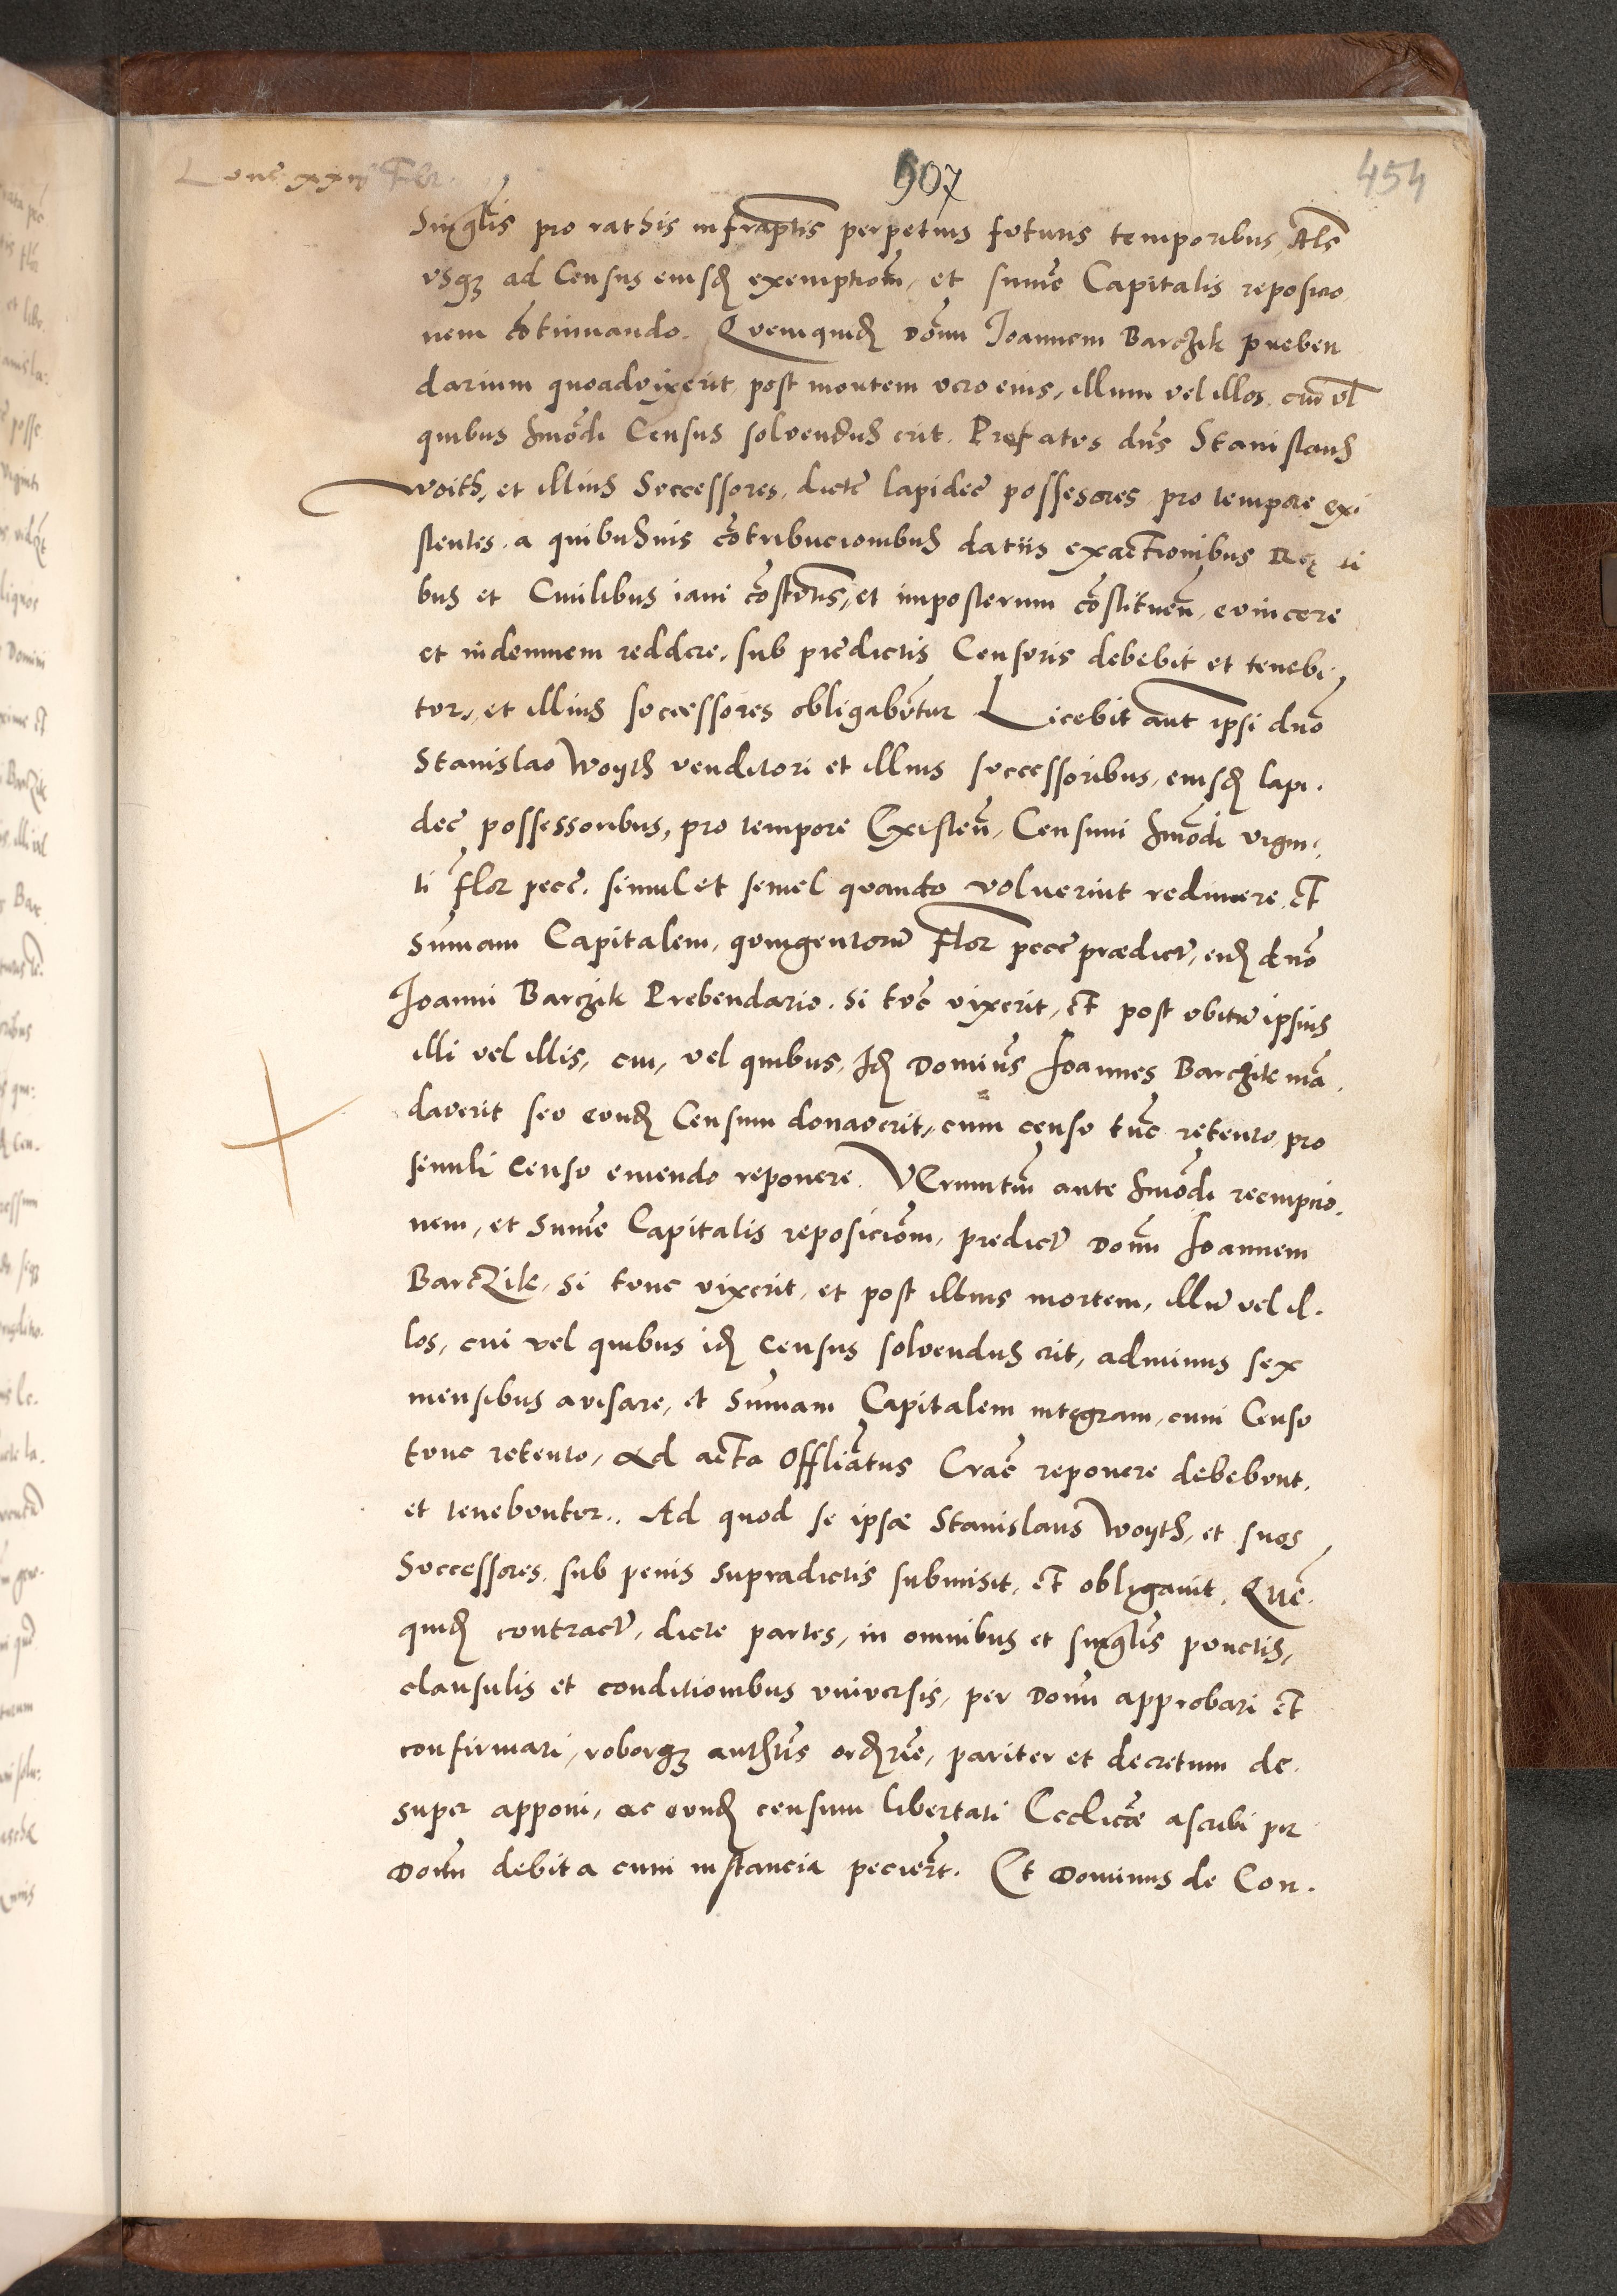 907
454
Singl̃is pro rathis infrap̃tis perpetuis futuris temporibus, Al̃s
vsqȝ ad Census eiusđ exemptiom̃, et sum̃e Capitalis reposicio
nem cõtinuando. Quemquiđ Dom̃ Joannem Barczik preben
darium quoadvixerit, post mortem vero eius, illum vel illos, cui vl̃
quibus hm̃õdi Census solvendus erit. Prefatus dñs Stanislaus
Woith, et illius Successores, dicte lapidee possesores pro tempore exi
stentes, a quibusvis cõtribucionibus datiis exactionibus
bus et Civilibus iam cõstĩtis, et imposterum cõstituen̄, evincere
et indemnem reddere, sub predictis Censuris debebit et tenebi
tur, et illius successores obligabũtur Licebit aũt ipsi dño
Stanislao Woyth venditori et illius successoribus, eiusđ lapi.
dee possessoribus, pro tempore Existeñ, Censum hm̃õdi vigin.
ti flor pecẽ. simul et semel quando voluerint redimere, et
sum̃am Capitalem, quingentorũ Flor pecẽ prædict̃, eiđ dño
Joanni Barczik Prebendario. si tũc vixerit, et post obitũ ipsius
illi vel illis, cui, vel quibus, Iđ Domiñs Joannes Barczik mã.
daverit seu eunđ Censum donaverit, cum censu tũc retento, pro
simili Censu emendo reponere. Verumtm̃ ante hm̃õdi reempcio.
nem, et sum̃e Capitalis reposiciom̃, predict̃ Dom̃ Joannem
Barczik, si tunc vixerit, et post illius mortem, illũ vel il.
los, cui vel quibus iđ Census solvendus erit, adminus sex
mensibus avisare, et sum̃am Capitalem integram, cum Censu
tunc retento, Ad acta Offĩciatus Crac̃ reponere debebunt,
et tenebuntur. Ad quod se ipsæ Stanislaus Woyth, et suos
Successores, sub penis supradictis submisit, et obligavit, Quẽ.
quiđ contract̃, dicte partes, in omnibus et singl̃is punctis,
clausulis et conditionibus vniversis, per Dom̃ approbari et
confirmari, roborqȝ auth̃tis orđrie, pariter et decretum de.
super apponi, ac eunđ censum libertati Ecclic̃e ascribi per
Dom̃ debita cum instancia pecier̃t. Et Dominus de Con.